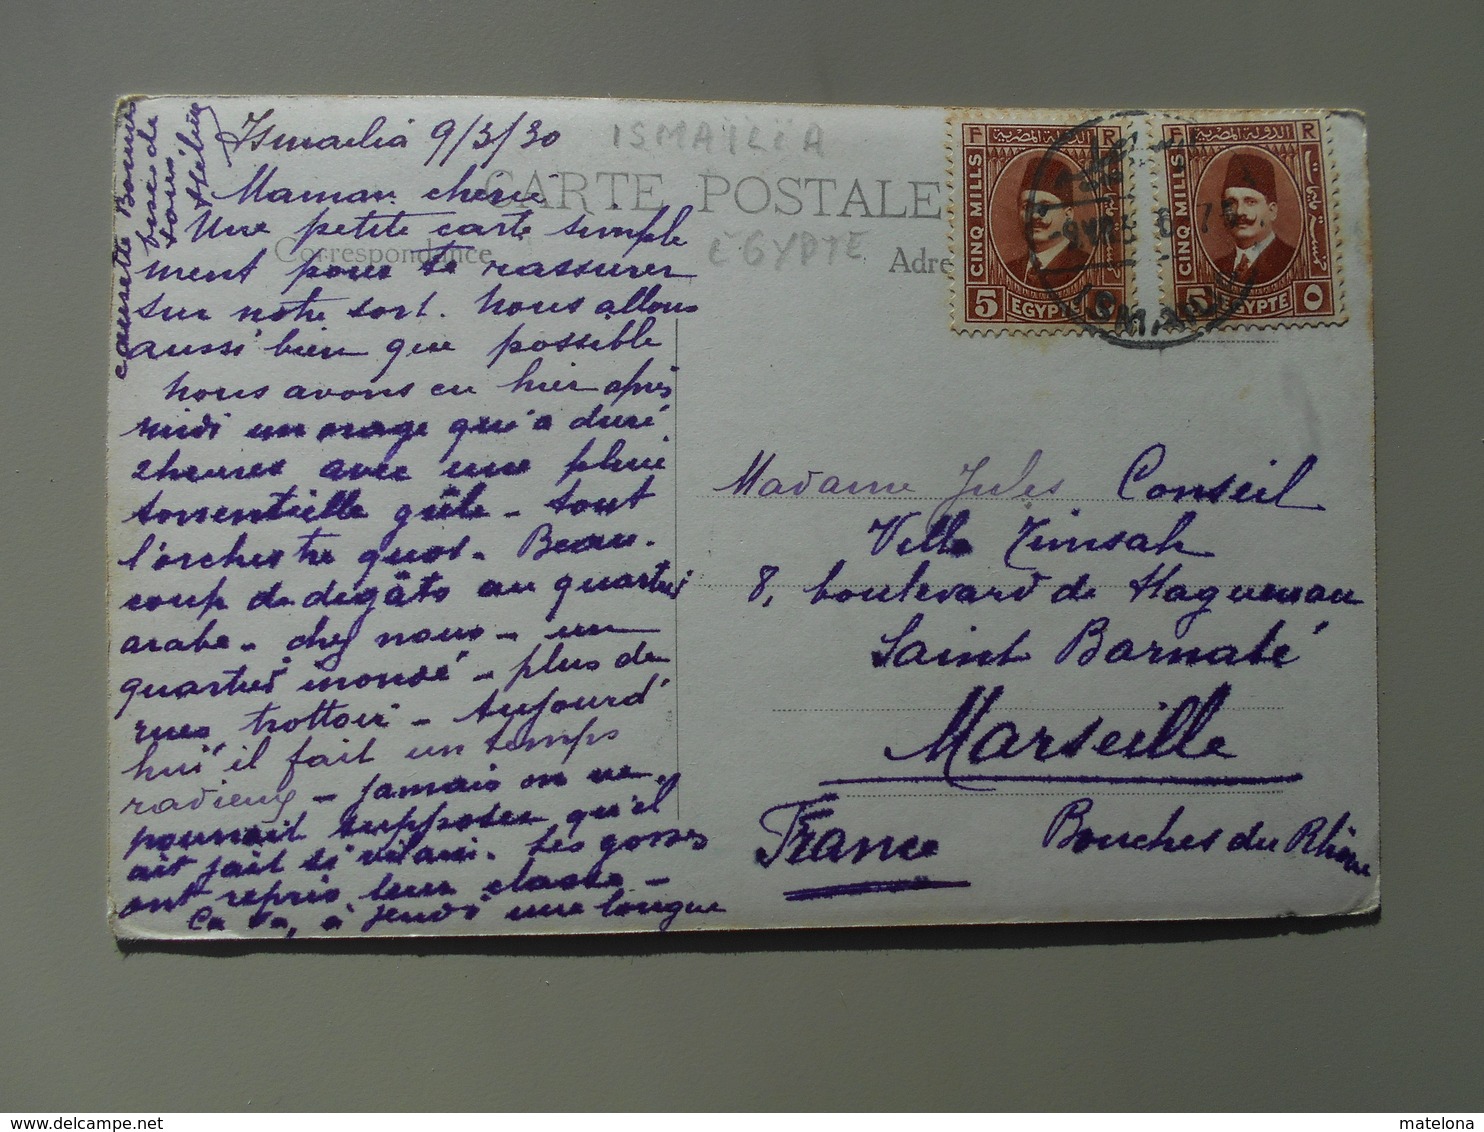 Ismailia 9/3/30
ISMAÏLIA
EGYPTE
CARTE POSTALE
Correspondance
Adre
Maman chérie
Une petite carte simple
ment pour te rassurer
sur notre sort. Nous allons
aussi bien que possible
Nous avons eu hier après
midi un orage qui a duré
2 heures avec une pluie
torrentielle grêle - tout
l'orchestre quoi - Beau-
coup de dégâts au quartier
arabe - chez nous - un
quartier inondé - plus de
rues trottoir - Aujourd'
hui il fait un temps
radieux - jamais on ne
pourrait supposer qu'il
ait fait si vilain. Les gosses
ont repris leur classe -
Ca va, à jeudi une longue
causette Bonnes
bises de
tous
F CINQ MILLS 5 EGYPTE R الدولة المصرية
F CINQ MILLS 5 EGYPTE ٥ R الدولة المصرية
ISMAILIA
Madame Jules Conseil
Villa Timsah
8, boulevard de Haguenau
Saint Barnabé
Marseille
France
Bouches du Rhône
matelona